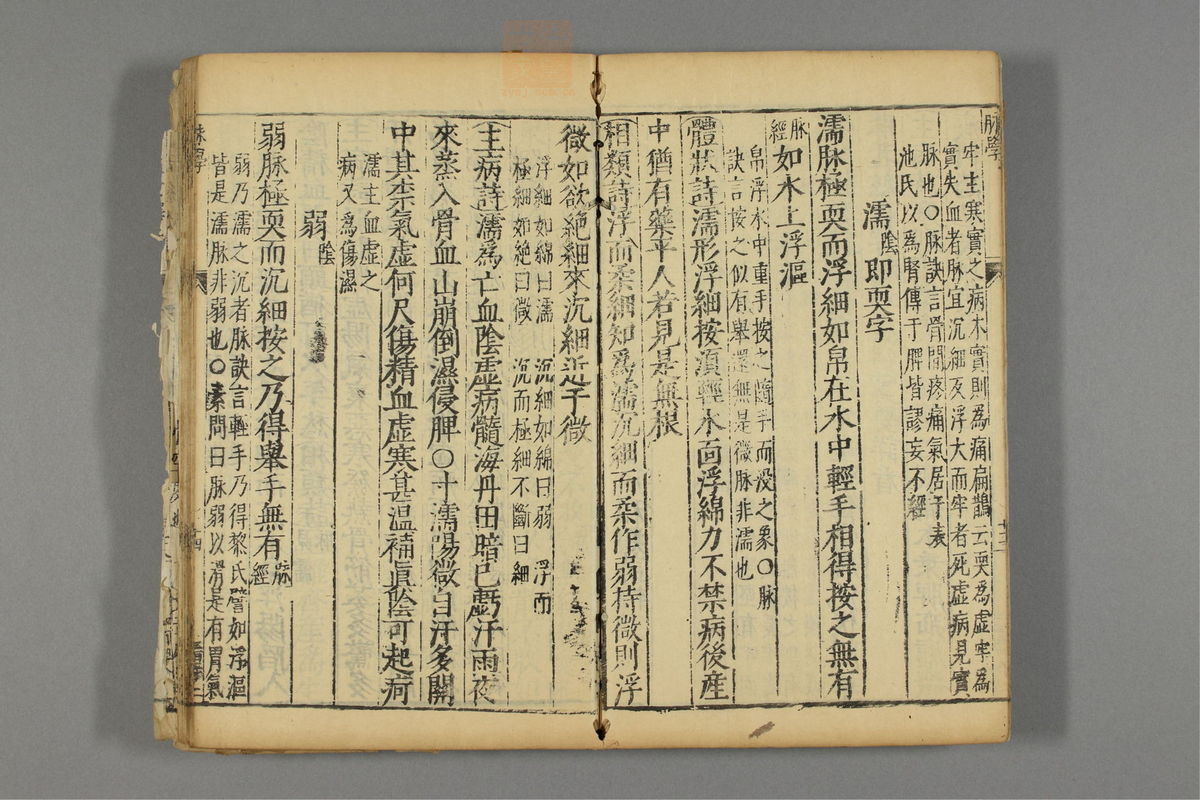 牢主寒實之病木實則爲痛扁鵲云耎爲虛牢爲
實失血者脉宜沉細反浮大而牢者死虛病見實
脉也○脉訣言骨間疼痛氣居于表
池氏以爲腎傳于脾皆謬妄不經
濡陰即耎字
濡脉極耎而浮細如帛在水中輕手相得按之無有
脉經
如水上浮漚
帛浮水中重手按之隨手而没之象○脉
訣言按之似有舉還無是微脉非濡也
體狀詩濡形浮細按須輕水面浮綿力不禁病後産
中猶有藥平人若見是無根
相類詩浮而柔細知爲濡沉細而柔作弱持微則浮
微如欲絶細來沉細近于微
浮細如綿曰濡 沉細如綿曰弱 浮而
極細如絶曰微 沉而極細不斷曰細
主病詩濡爲亡血陰虛病髓海丹田暗已虧汗雨夜
來蒸入骨血山崩倒濕侵脾○寸濡陽微自汗多關
中其柰氣虛何尺傷精血虛寒甚温補眞陰可起疴
濡主血虛之
病又爲傷濕
弱陰
弱脉極耎而沉細按之乃得舉手無有
脉經
弱乃濡之沉者脉訣言輕手乃得黎氏譬如浮漚
皆是濡脉非弱也○素問曰脉弱以滑是有胃氣